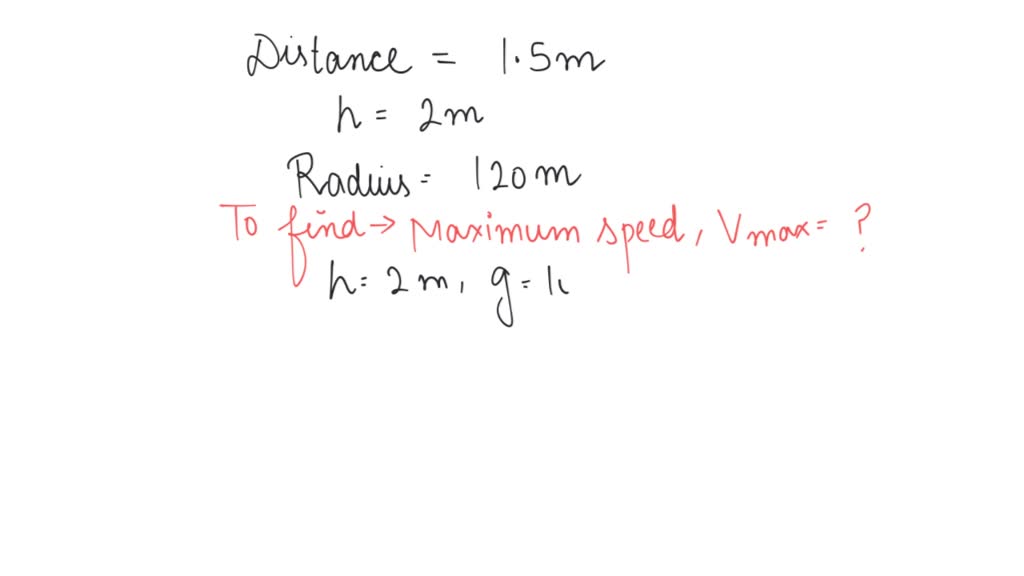 Distance = 1.5m
h = 2m
Radius = 120m
To find → Maximum speed, Vmax = ?
h = 2m, g = 1